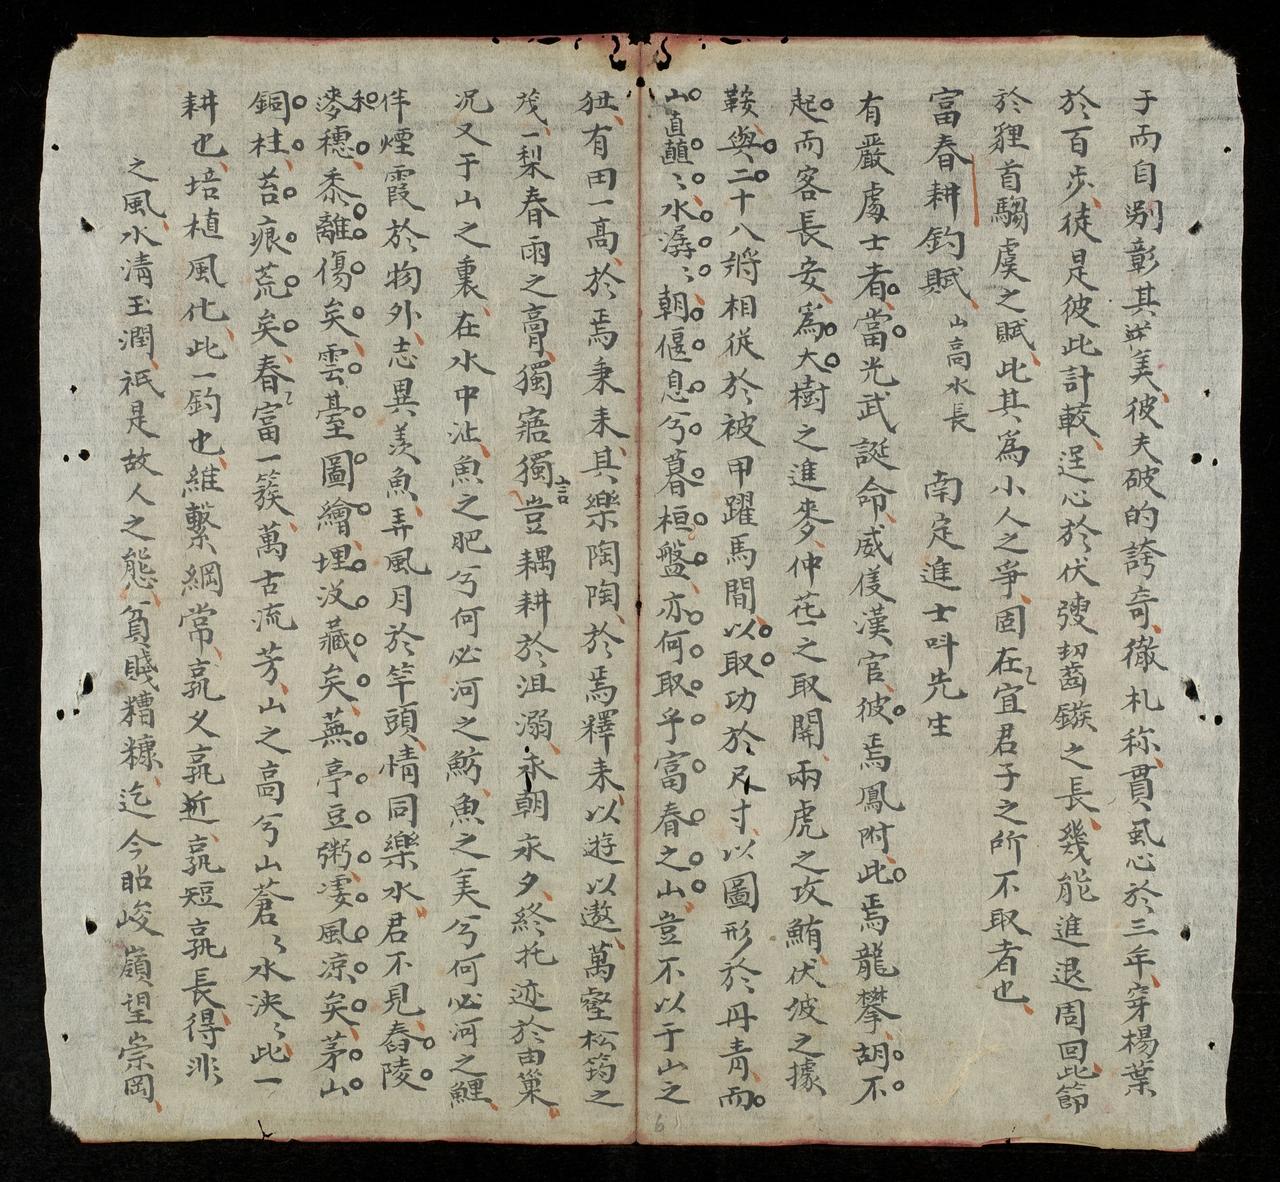 于而自别彰其美彼夫破的誇奇徹札称貫虱心於三年穿楊葉
於百步徒是彼此計較逞心於伏弢切齒鏃之長幾能進退周回此節
於貍首騶虞之賦此其為小人之爭固在宜君子之所不取者也
富春耕釣賦 山高水長 南定進士呌先生
有嚴處士者當光武誕命威僅漢官彼焉鳳附此焉龍攀胡不
起而客長安為大樹之進麥仲花之取開兩虎之攻鮪伏波之據
鞍與二十八將相從於被甲躍馬間以取功於尺寸以圖形於丹青而
山直矗〻水潺〻朝偃息兮暮桓盤亦何取乎富春之山豈不以于山之
有田一高於焉秉耒其樂陶陶於焉釋耒以遊以遨萬壑松筠之
茂一犁春雨之膏獨寤獨言豈耦耕於沮溺永朝永夕終托迹於由巢
况又于山之裏在水中沚魚之肥兮何必河之魴魚之美兮何必河之鯉
伴煙霞於物外志異羡魚弄風月於竿頭情同樂水君不見舂陵
和麥穗黍離傷矣雲臺圖繪埋没藏矣蕪亭豆粥凄風凉矣茅山
銅柱苔痕荒矣春富一簇萬古流芳山之高兮山蒼〻水泱〻此一
耕也培植風化此一釣也維繫綱常孰久孰近孰短孰長得非
之風水清玉潤祇是故人之態貧賤糟糠迄今眙峻嶺望崇岡